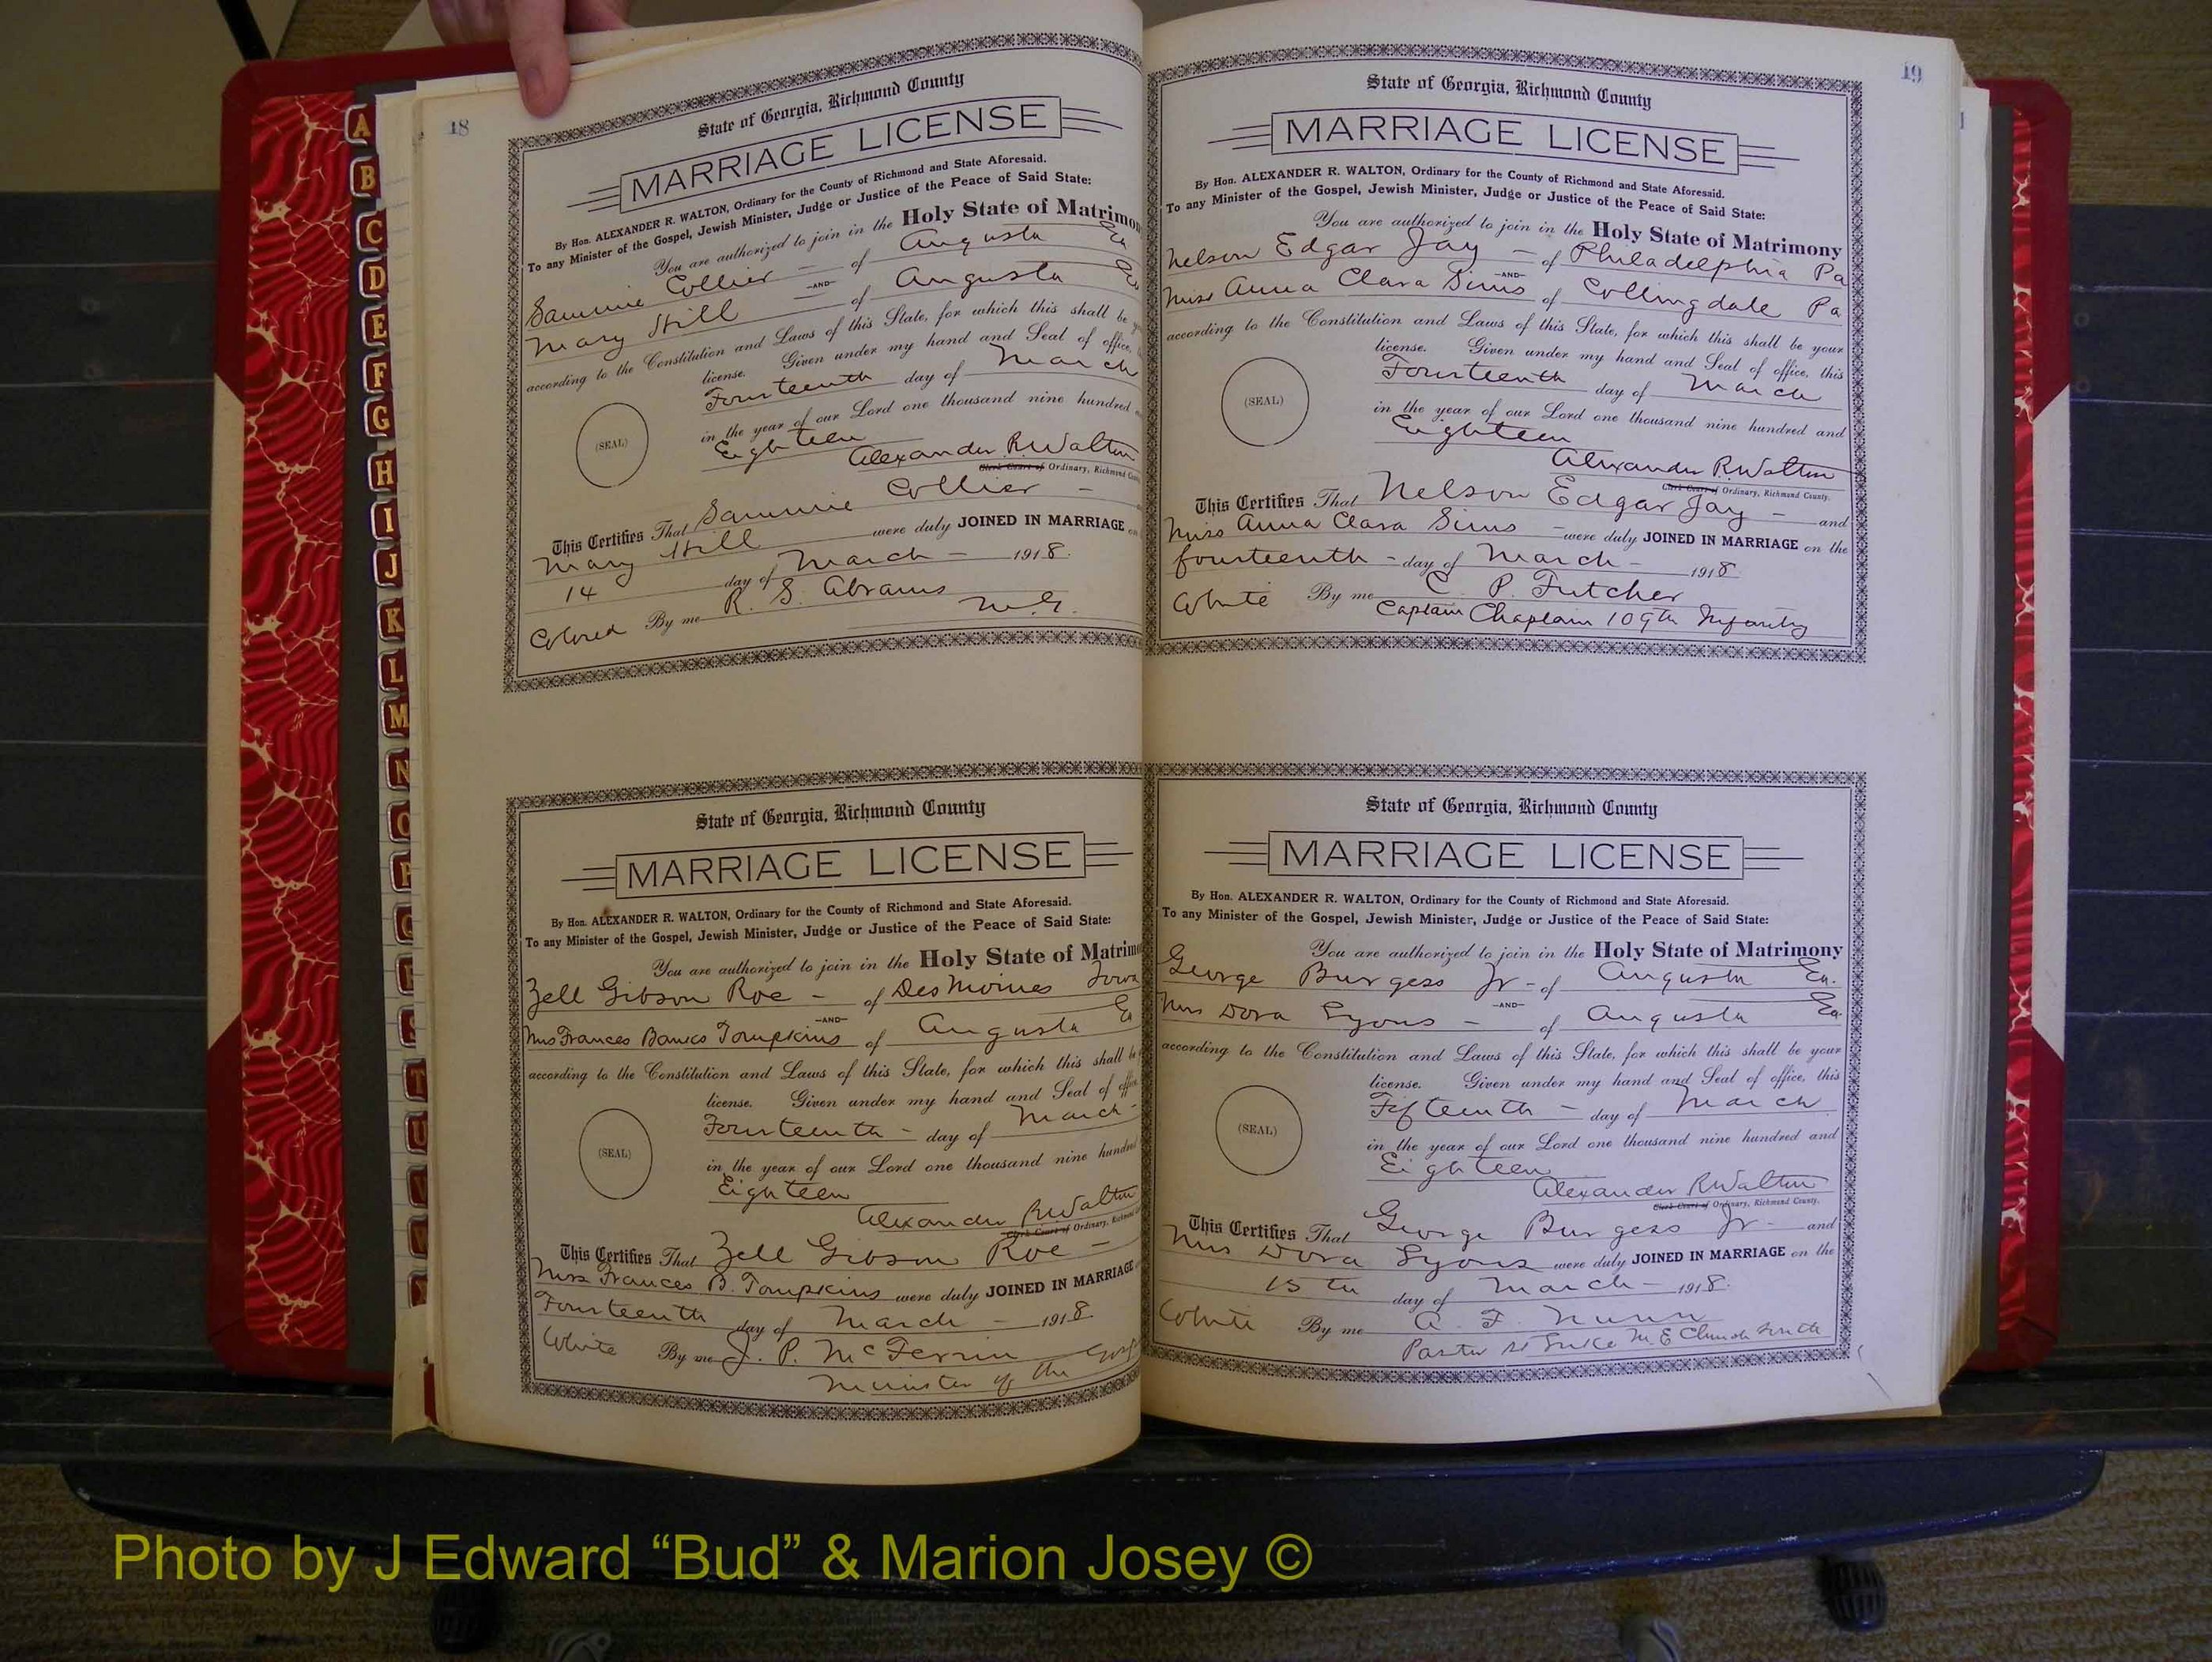 A
B
C
D
E
F
G
H
I
J
K
L
M
N
O
P
Q
R
S
T
U
V
W
18
State of Georgia, Richmond County
MARRIAGE LICENSE
By Hon. ALEXANDER R. WALTON, Ordinary for the County of Richmond and State Aforesaid.
To any Minister of the Gospel, Jewish Minister, Judge or Justice of the Peace of Said State:
You are authorized to join in the Holy State of Matrimon
Sammie Collier - of Augusta Ga
-AND-
Mary Hill of Augusta Ga
according to the Constitution and Laws of this State, for which this shall be
license. Given under my hand and Seal of office,
Fourteenth day of March
(SEAL)
in the year of our Lord one thousand nine hundred
Eighteen
Alexander R. Walton
Clerk Court of Ordinary, Richmond County
This Certifies That Sammie Collier -
Mary Hill were duly JOINED IN MARRIAGE on
14 day of March - 1918.
Colored By me R. S. Abrams
M.G.
State of Georgia, Richmond County
MARRIAGE LICENSE
By Hon. ALEXANDER R. WALTON, Ordinary for the County of Richmond and State Aforesaid.
To any Minister of the Gospel, Jewish Minister, Judge or Justice of the Peace of Said State:
You are authorized to join in the Holy State of Matrim
Zell Gibson Roe - of Des Moines Iowa
-AND-
Miss Frances Banks Tompkins of Augusta Ga
according to the Constitution and Laws of this State, for which this shall b
license. Given under my hand and Seal of office
Fourteenth - day of March -
(SEAL)
in the year of our Lord one thousand nine hundred
Eighteen
Alexander R Walton
Clerk Court of Ordinary, Richmond
This Certifies That Zell Gibson Roe -
Miss Frances B. Tompkins were duly JOINED IN MARRIAGE
Fourteenth day of March - 1918.
White By me J. P. McFerrin
Minister of the Gosp
19
State of Georgia, Richmond County
MARRIAGE LICENSE
By Hon. ALEXANDER R. WALTON, Ordinary for the County of Richmond and State Aforesaid.
To any Minister of the Gospel, Jewish Minister, Judge or Justice of the Peace of Said State:
You are authorized to join in the Holy State of Matrimony
Nelson Edgar Jay - of Philadelphia Pa
-AND-
Miss Anna Clara Sims of Collingdale Pa
according to the Constitution and Laws of this State, for which this shall be your
license. Given under my hand and Seal of office, this
Fourteenth day of March
(SEAL)
in the year of our Lord one thousand nine hundred and
Eighteen
Alexander R. Walton
Clerk Court of Ordinary, Richmond County.
This Certifies That Nelson Edgar Jay - and
Miss Anna Clara Sims - were duly JOINED IN MARRIAGE on the
fourteenth - day of March - 1918.
White By me C. P. Futcher
Captain Chaplain 109th Infantry
State of Georgia, Richmond County
MARRIAGE LICENSE
By Hon. ALEXANDER R. WALTON, Ordinary for the County of Richmond and State Aforesaid.
To any Minister of the Gospel, Jewish Minister, Judge or Justice of the Peace of Said State:
You are authorized to join in the Holy State of Matrimony
George Burgess Jr - of Augusta Ga.
-AND-
Dora Lyons - of Augusta Ga.
according to the Constitution and Laws of this State, for which this shall be your
license. Given under my hand and Seal of office, this
Fifteenth - day of March
(SEAL)
in the year of our Lord one thousand nine hundred and
Eighteen
Alexander R Walton
Clerk Court of Ordinary, Richmond County.
This Certifies That George Burgess Jr - and
Dora Lyons were duly JOINED IN MARRIAGE on the
15th day of March - 1918.
White By me A. F. Nunn
Pastor St Luke M. E Church South
Photo by J Edward “Bud” & Marion Josey ©